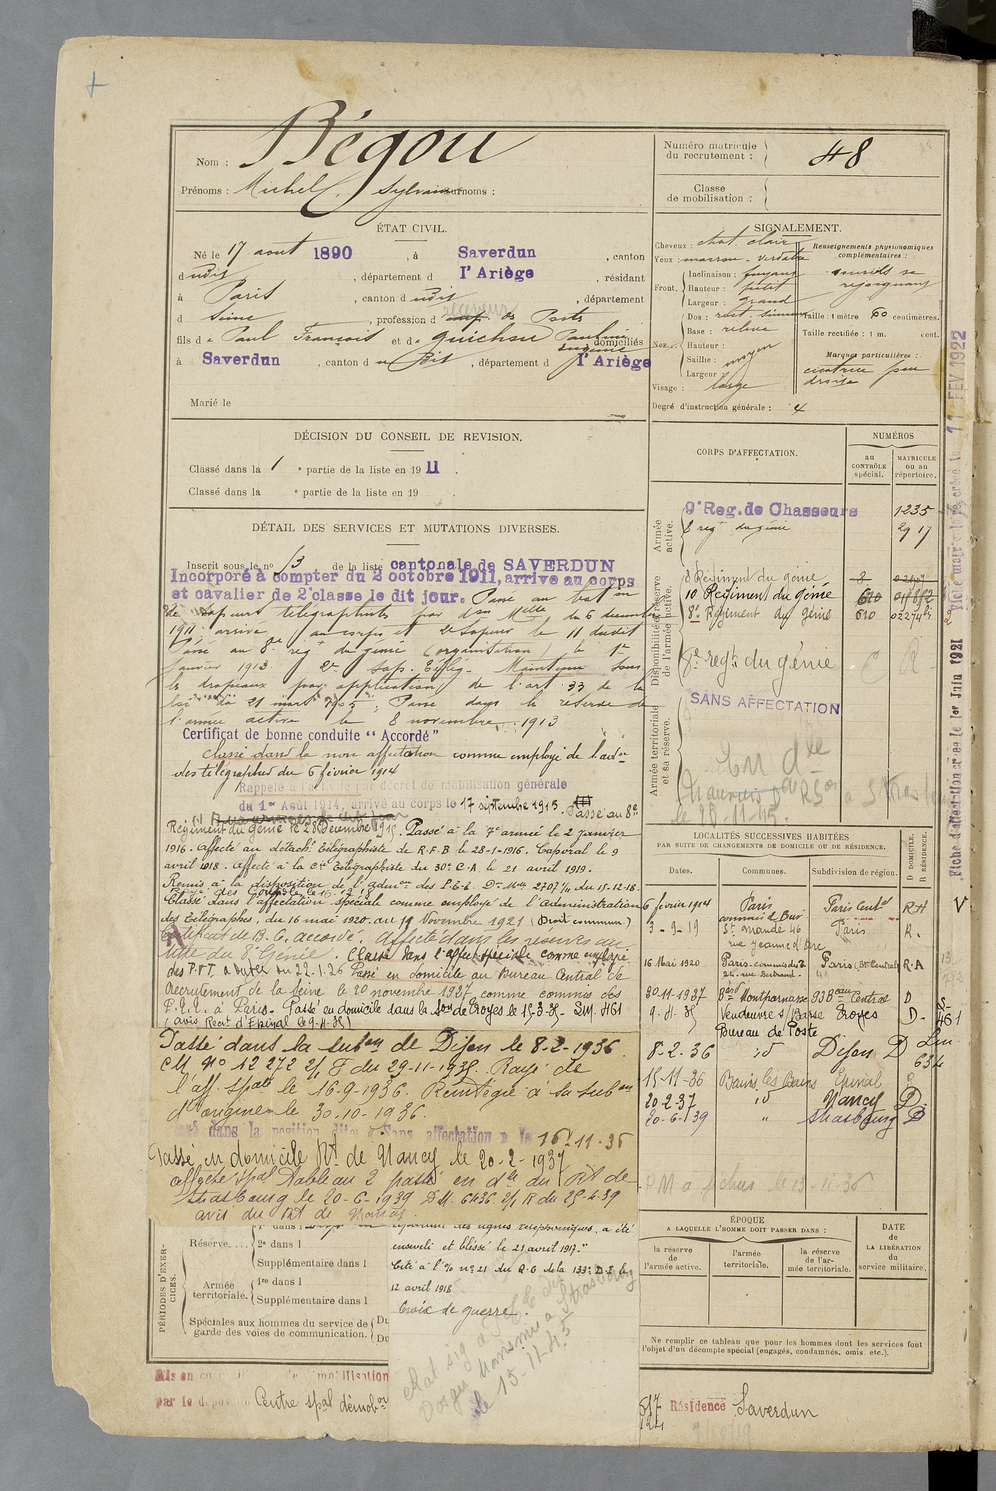 Nom : Bégou
Prénoms : Michel, Sylvain surnoms :
Numéro matricule du recrutement : 48
Classe de mobilisation :
ÉTAT CIVIL.
Né le 17 août 1890, à Saverdun, canton
dudit, département d l'Ariège, résidant
à Paris, canton dudit, département
d Seine, profession d des Postes
fils de Paul François et de Guichou domiciliés
à Saverdun, canton dudit, département d l'Ariège
Marié le
SIGNALEMENT.
Cheveux : chat. clair
Yeux : marron - verdâtre
Front. Inclinaison : fuyant
Hauteur : petit
Largeur : grand
Nez. Dos : rect. sinueux
Base : relevée
Hauteur :
Saillie : moyen
Largeur :
Visage : large
Renseignements physionomiques complémentaires :
sourcils se
rejoignant
Taille : 1 mètre 60 centimètres.
Taille rectifiée : 1 m. cent.
Marques particulières :
cicatrice joue
droite
Degré d'instruction générale : 4
DÉCISION DU CONSEIL DE REVISION.
Classé dans la 1e partie de la liste en 1911.
Classé dans la e partie de la liste en 19 .
DÉTAIL DES SERVICES ET MUTATIONS DIVERSES.
Inscrit sous le no 13 de la liste cantonale de SAVERDUN
Incorporé à compter du 2 octobre 1911, arrive au corps
et cavalier de 2e classe le dit jour. Passé au bat on
de sapeurs télégraphistes par don Mlle du 6 décembre
1911 arrivé au corps et 2e sapeur le 11 dudit
Passé au 8e regt du génie (organisation) le 1er
janvier 1913 2e Sap. Télég. Maintenu sous
les drapeaux par application de l'art 33 de la
loi du 21 mars 1905. Passé dans la réserve de
l'armée active le 8 novembre 1913
Certificat de bonne conduite “Accordé”
Classé dans la non affectation comme employé de l'adon
des télégraphes du 6 février 1914
Rappelé à l'activité par décret de mobilisation générale
du 1er Août 1914, arrivé au corps le 17 septembre 1915. Passé au 8e
Régiment du Génie le 28 Décembre 1915. Passé à la 7e armée le 2 janvier
1916. Affecté au détachᵗ Télégraphiste de R.F.B le 28-1-1916. Caporal le 9
avril 1918. Affecté à la Cie Télégraphiste du 30e C.A. le 21 avril 1919.
Remis à la disposition de l'admon des P.T.T. Don Mlle 2707 1/11 du 15-12-18.
Classé dans l'affectation spéciale comme employé de l'Administration
des Télégraphes, du 16 mai 1920. au 19 Novembre 1921 (Droit commun.)
Certificat de B.C. accordé. Affecté dans les réserves au
du 8e Génie. Classé dans l'affect spéciale comme employé
des P.T.T. à dater du 22.1.26 Passé en domicile au Bureau Central de
recrutement de la Seine le 20 novembre 1927 comme commis des
P.T.T. à Paris. Passé en domicile dans la son de Troyes le 15-3-35 - Lm. 461
(avis Recrt d'Epinal le 9-4-35)
Passé dans la subon de Dijon le 8-2-1936.
CM No 12 272 2/1 F du 29-11-1935. Rayé de
l'aff. spale le 16-9-1936. Réintégré à sa subon
d'origine le 30-10-1936.
dans la position dite « Sans affectation » le 15-11-36
Passé en domicile Rt de Nancy le 20-2-1937
affecté spal Tableau 2 passé en dle du Rt de
Strasbourg le 20-6-1939 D.M. 6436. 2/1 R du 25-4-39
avis du Rt de Nancy
CORPS D'AFFECTATION.
NUMÉROS
au contrôle spécial.
matricule ou au répertoire.
Armée active.
9e Reg. de Chasseurs 1235
8 regt du génie 2917
Disponibilité et réserve de l'armée active.
8 Régiment du génie
10 Régiment du Génie
8e Régiment du génie 610
8e regt du génie
SANS AFFECTATION
Armée territoriale et sa réserve.
le 28-11-45.
LOCALITÉS SUCCESSIVES HABITÉES
PAR SUITE DE CHANGEMENTS DE DOMICILE OU DE RÉSIDENCE.
Dates. Communes. Subdivision de région. D DOMICILE. R RÉSIDENCE.
6 février 1914 Paris Paris Central R.A
3-9-19 St Mandé 46 rue Jeanne d'Arc Paris R.
16 Mai 1920 Paris. commis des P. Paris (Bau Central) R.A
20-11-1927 Bard Montparnasse 93 Bau Central D
9.4.35 Vendeuvre s/Barse Troyes D-
Bureau de Poste
8-2-36 id Dijon D
15-11-36 Bains les Bains Epinal
20-2-37 id Nancy D
20-6-39 " Strasbourg D
Lm 461
634
ÉPOQUE
A LAQUELLE L'HOMME DOIT PASSER DANS :
la réserve de l'armée active.
l'armée territoriale.
la réserve de l'armée territoriale.
DATE de LA LIBÉRATION du service militaire.
Ne remplir ce tableau que pour les hommes dont les services font
l'objet d'un décompte spécial (engagés, condamnés, omis, etc.).
PÉRIODES D'EXERCICES.
Réserve.... 2e dans l
Supplémentaire dans l
Armée territoriale. 1re dans l
Supplémentaire dans l
Spéciales aux hommes du service de garde des voies de communication. Du
Du
des lignes téléphoniques, a été
enseveli et blessé le 21 avril 1917."
Cité à l'O/ no 21 du Q.G de la 133e D.I. le
12 avril 1918
Croix de guerre.
transmis à Strasbourg
le 15-11-45
Centre spal démobon
Résidence Saverdun
Fiche d'affectation créée le 1er Juin 1921
11 FEV 1922